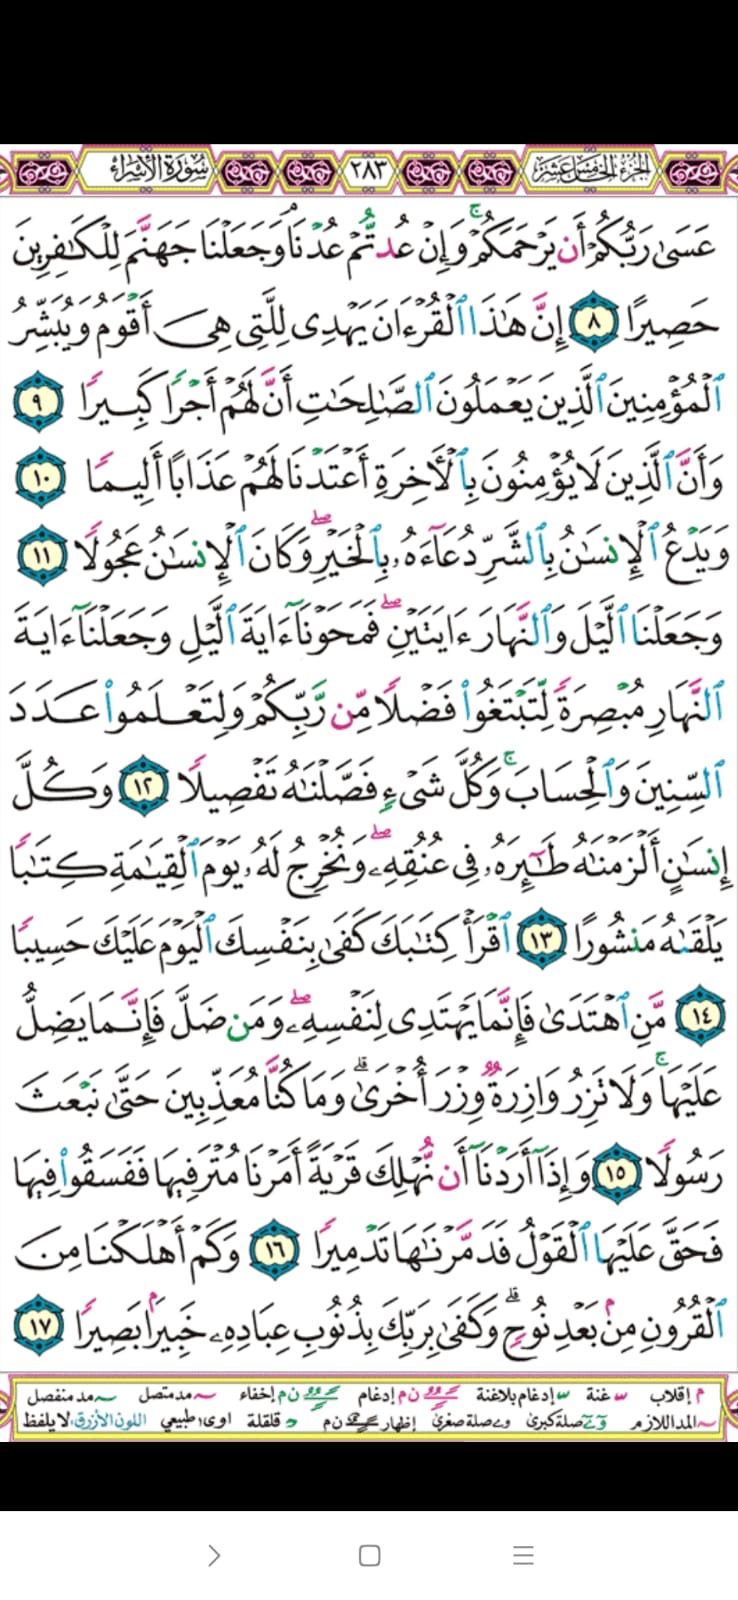 الجزء الخامس عشر ٢٨٣ سورة الإسراء
عَسَىٰ رَبُّكُمْ أَن يَرْحَمَكُمْ ۚ وَإِنْ عُدتُّمْ عُدْنَا ۘ وَجَعَلْنَا جَهَنَّمَ لِلْكَـٰفِرِينَ
حَصِيرًا ٨ إِنَّ هَـٰذَا ٱلْقُرْءَانَ يَهْدِى لِلَّتِى هِىَ أَقْوَمُ وَيُبَشِّرُ
ٱلْمُؤْمِنِينَ ٱلَّذِينَ يَعْمَلُونَ ٱلصَّـٰلِحَـٰتِ أَنَّ لَهُمْ أَجْرًا كَبِيرًا ٩
وَأَنَّ ٱلَّذِينَ لَا يُؤْمِنُونَ بِٱلْـَٔاخِرَةِ أَعْتَدْنَا لَهُمْ عَذَابًا أَلِيمًا ١٠
وَيَدْعُ ٱلْإِنسَـٰنُ بِٱلشَّرِّ دُعَآءَهُۥ بِٱلْخَيْرِ ۖ وَكَانَ ٱلْإِنسَـٰنُ عَجُولًا ١١
وَجَعَلْنَا ٱلَّيْلَ وَٱلنَّهَارَ ءَايَتَيْنِ ۖ فَمَحَوْنَآ ءَايَةَ ٱلَّيْلِ وَجَعَلْنَآ ءَايَةَ
ٱلنَّهَارِ مُبْصِرَةً لِّتَبْتَغُوا۟ فَضْلًا مِّن رَّبِّكُمْ وَلِتَعْلَمُوا۟ عَدَدَ
ٱلسِّنِينَ وَٱلْحِسَابَ ۚ وَكُلَّ شَىْءٍ فَصَّلْنَـٰهُ تَفْصِيلًا ١٢ وَكُلَّ
إِنسَـٰنٍ أَلْزَمْنَـٰهُ طَـٰٓئِرَهُۥ فِى عُنُقِهِۦ ۖ وَنُخْرِجُ لَهُۥ يَوْمَ ٱلْقِيَـٰمَةِ كِتَـٰبًا
يَلْقَىٰهُ مَنشُورًا ١٣ ٱقْرَأْ كِتَـٰبَكَ كَفَىٰ بِنَفْسِكَ ٱلْيَوْمَ عَلَيْكَ حَسِيبًا
١٤ مَّنِ ٱهْتَدَىٰ فَإِنَّمَا يَهْتَدِى لِنَفْسِهِۦ ۖ وَمَن ضَلَّ فَإِنَّمَا يَضِلُّ
عَلَيْهَا ۚ وَلَا تَزِرُ وَازِرَةٌ وِزْرَ أُخْرَىٰ ۗ وَمَا كُنَّا مُعَذِّبِينَ حَتَّىٰ نَبْعَثَ
رَسُولًا ١٥ وَإِذَآ أَرَدْنَآ أَن نُّهْلِكَ قَرْيَةً أَمَرْنَا مُتْرَفِيهَا فَفَسَقُوا۟ فِيهَا
فَحَقَّ عَلَيْهَا ٱلْقَوْلُ فَدَمَّرْنَـٰهَا تَدْمِيرًا ١٦ وَكَمْ أَهْلَكْنَا مِنَ
ٱلْقُرُونِ مِنۢ بَعْدِ نُوحٍ ۗ وَكَفَىٰ بِرَبِّكَ بِذُنُوبِ عِبَادِهِۦ خَبِيرًۢا بَصِيرًا ١٧
م إقلاب غنة إدغام بلاغنة ن م إدغام ن م إخفاء مد متصل مد منفصل
المد اللازم صلة كبرى صلة صغرى إظهار ن م قلقلة اوى طبيعي اللون الأزرق لا يلفظ